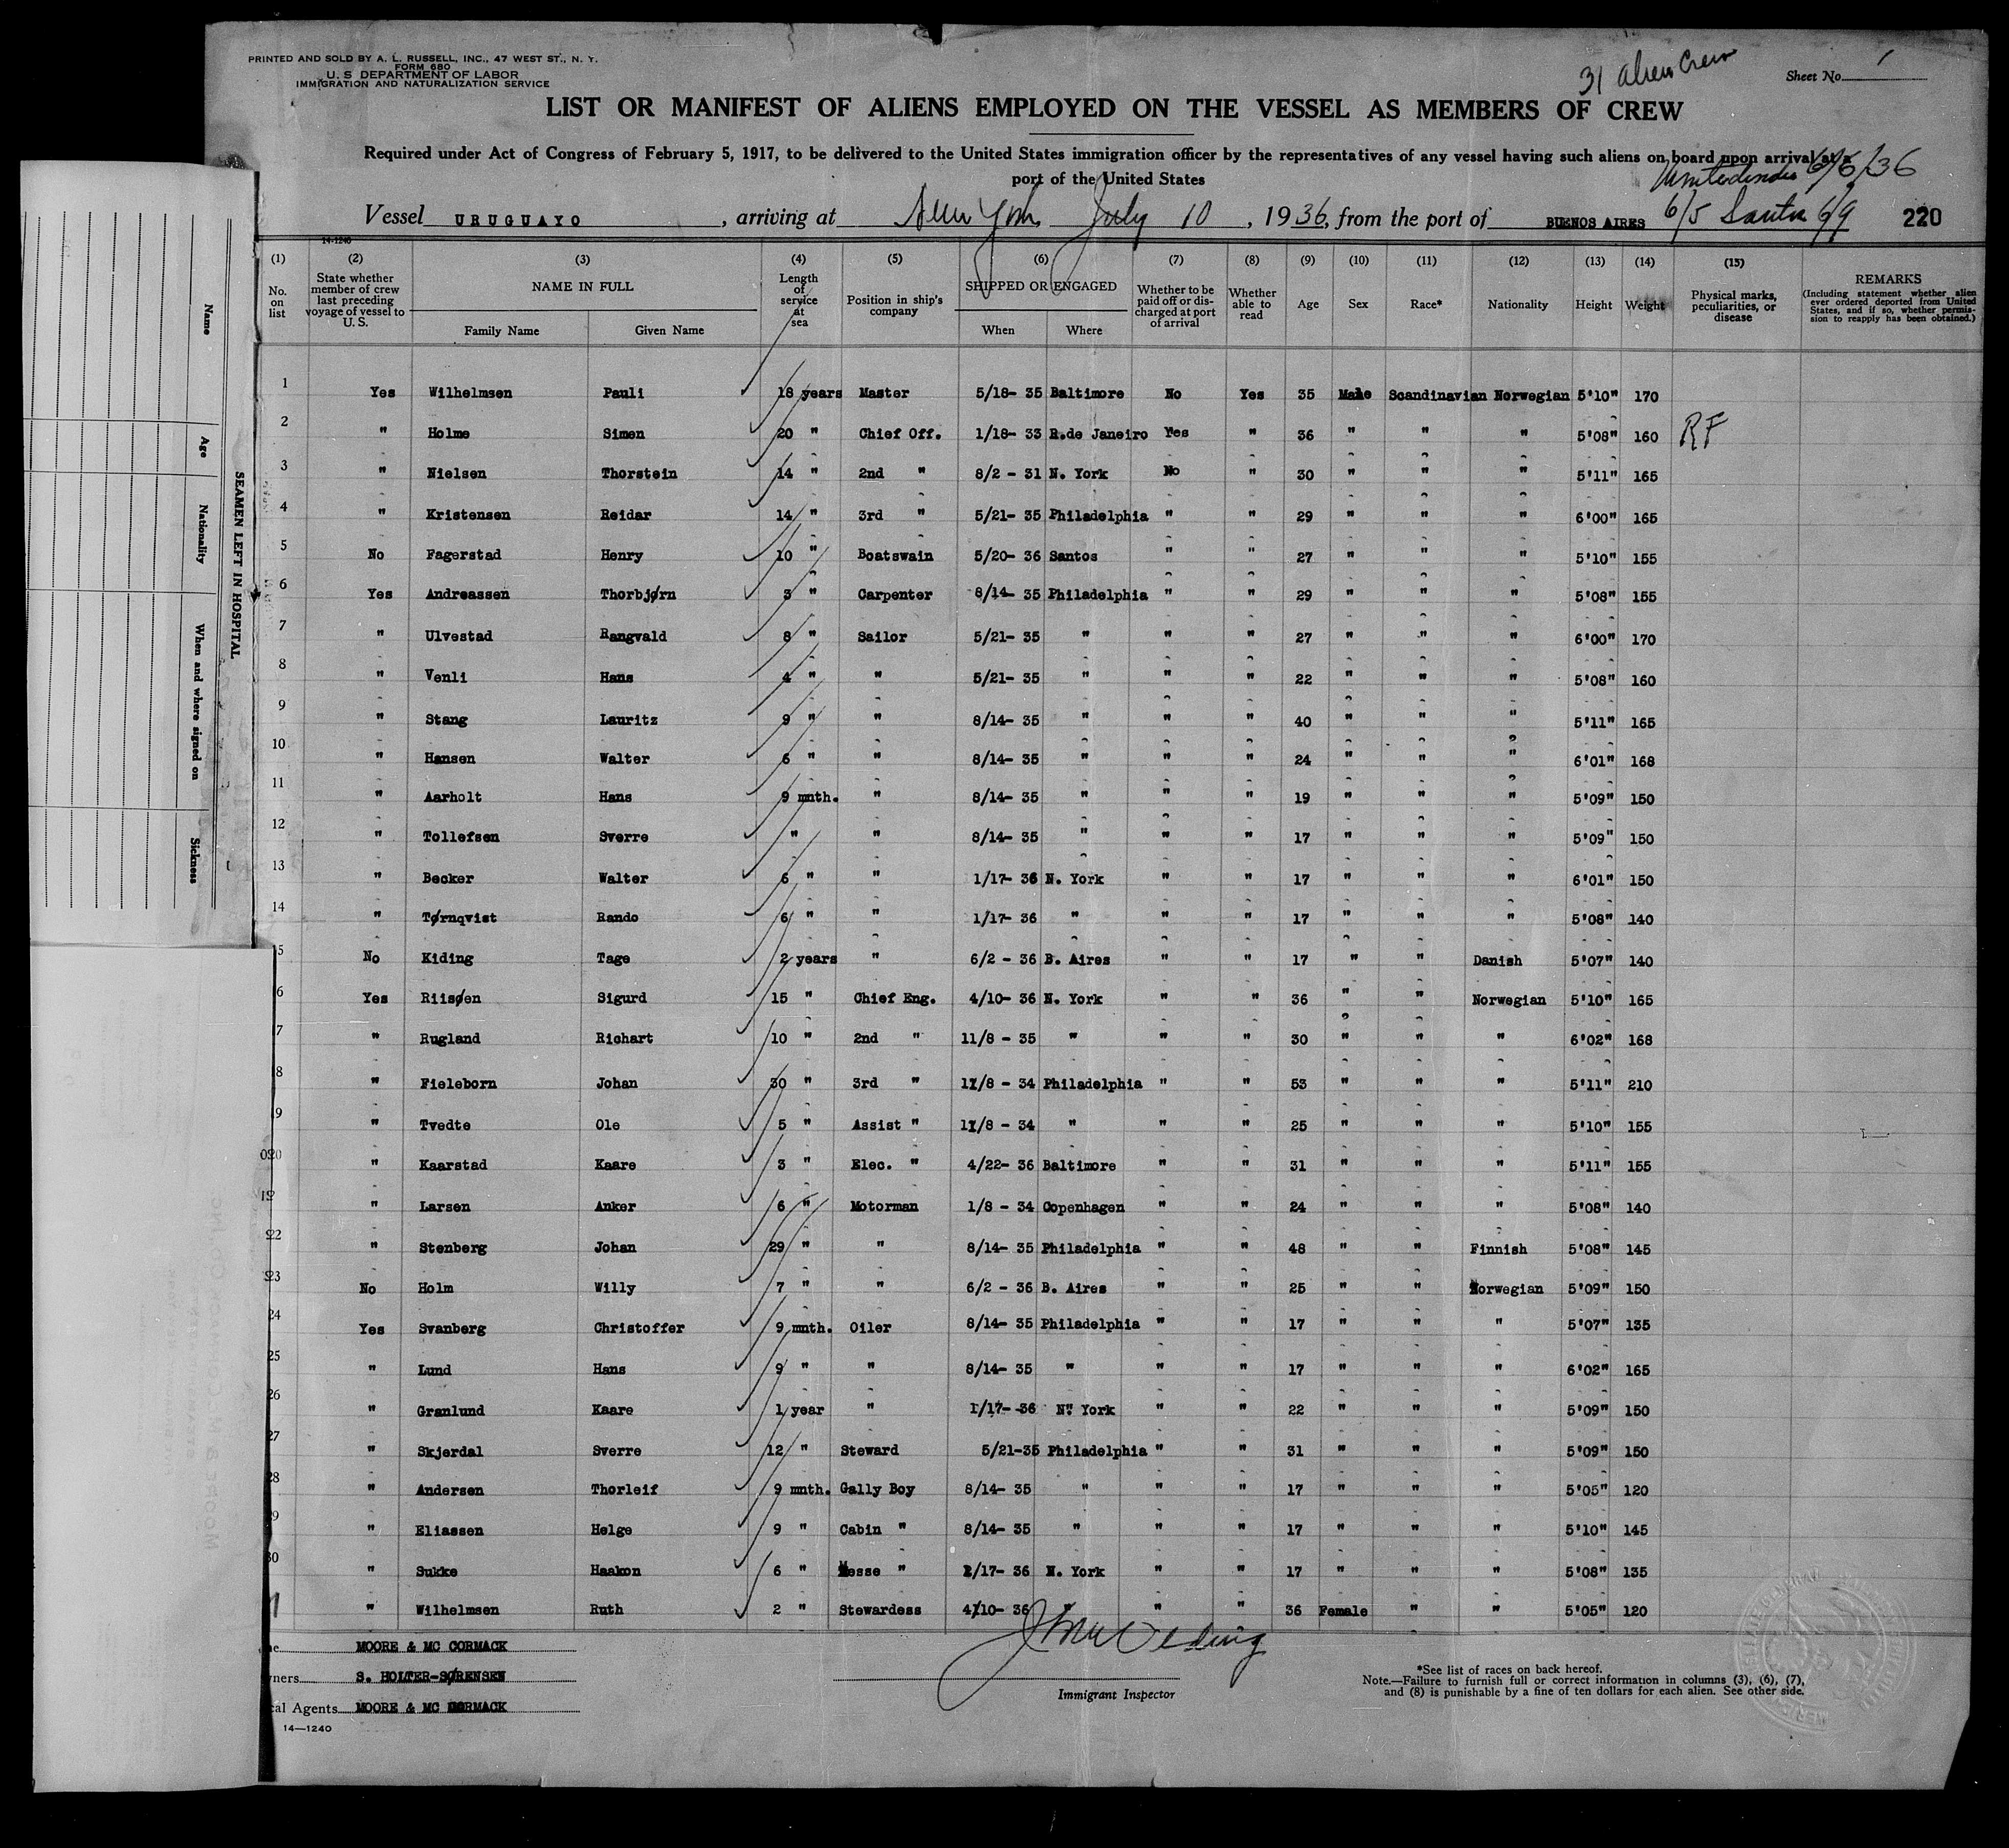 PRINTED AND SOLD BY A. L. RUSSELL, INC., 47 WEST ST., N. Y.
FORM 680
U. S DEPARTMENT OF LABOR
IMMIGRATION AND NATURALIZATION SERVICE
31 alien Crew
Sheet No. 1
LIST OR MANIFEST OF ALIENS EMPLOYED ON THE VESSEL AS MEMBERS OF CREW
Required under Act of Congress of February 5, 1917, to be delivered to the United States immigration officer by the representatives of any vessel having such aliens on board upon arrival at a
port of the United States
6/6/36
Vessel URUGUAYO, arriving at New York July 10, 1936, from the port of BUENOS AIRES 6/5 Santos 6/9 220
14-1240
(1) (2) (3) (4) (5) (6) (7) (8) (9) (10) (11) (12) (13) (14) (15)
No. on list
State whether member of crew last preceding voyage of vessel to U. S.
NAME IN FULL
Family Name Given Name
Length of service at sea
Position in ship's company
SHIPPED OR ENGAGED
When Where
Whether to be paid off or discharged at port of arrival
Whether able to read
Age
Sex
Race*
Nationality
Height
Weight
Physical marks, peculiarities, or disease
REMARKS
(Including statement whether alien ever ordered deported from United States, and if so, whether permission to reapply has been obtained.)
1 Yes Wilhelmsen Pauli 18 years Master 5/18- 35 Baltimore No Yes 35 Male Scandinavian Norwegian 5'10" 170
2 " Holme Simen 20 " Chief Off. 1/18- 33 R.de Janeiro Yes " 36 " " " 5'08" 160 RF
3 " Nielsen Thorstein 14 " 2nd " 8/2 - 31 N. York No " 30 " " " 5'11" 165
4 " Kristensen Reidar 14 " 3rd " 5/21- 35 Philadelphia " " 29 " " " 6'00" 165
5 No Fagerstad Henry 10 " Boatswain 5/20- 36 Santos " " 27 " " " 5'10" 155
6 Yes Andreassen Thorbjørn 3 " Carpenter 8/14- 35 Philadelphia " " 29 " " " 5'08" 155
7 " Ulvestad Rangvald 8 " Sailor 5/21- 35 " " " 27 " " " 6'00" 170
8 " Venli Hans 4 " " 5/21- 35 " " " 22 " " " 5'08" 160
9 " Stang Lauritz 9 " " 8/14- 35 " " " 40 " " " 5'11" 165
10 " Hansen Walter 6 " " 8/14- 35 " " " 24 " " " 6'01" 168
11 " Aarholt Hans 9 mnth. " 8/14- 35 " " " 19 " " " 5'09" 150
12 " Tollefsen Sverre " " 8/14- 35 " " " 17 " " " 5'09" 150
13 " Becker Walter 6 " " 1/17- 36 N. York " " 17 " " " 6'01" 150
14 " Tørnqvist Rando 6 " " 1/17- 36 " " " 17 " " " 5'08" 140
5 No Kiding Tage 2 years " 6/2 - 36 B. Aires " " 17 " " Danish 5'07" 140
6 Yes Riisøen Sigurd 15 " Chief Eng. 4/10- 36 N. York " " 36 " " Norwegian 5'10" 165
7 " Rugland Richart 10 " 2nd " 11/8 - 35 " " " 30 " " " 6'02" 168
8 " Fieleborn Johan 30 " 3rd " 11/8 - 34 Philadelphia " " 53 " " " 5'11" 210
9 " Tvedte Ole 5 " Assist " 11/8 - 34 " " " 25 " " " 5'10" 155
20 " Kaarstad Kaare 3 " Elec. " 4/22- 36 Baltimore " " 31 " " " 5'11" 155
" Larsen Anker 6 " Motorman 1/8 - 34 Copenhagen " " 24 " " " 5'08" 140
22 " Stenberg Johan 29 " " 8/14- 35 Philadelphia " " 48 " " Finnish 5'08" 145
23 No Holm Willy 7 " " 6/2 - 36 B. Aires " " 25 " " Norwegian 5'09" 150
24 Yes Svanberg Christoffer 9 mnth. Oiler 8/14- 35 Philadelphia " " 17 " " " 5'07" 135
25 " Lund Hans 9 " " 8/14- 35 " " " 17 " " " 6'02" 165
26 " Granlund Kaare 1 year " 1/17- 36 N. York " " 22 " " " 5'09" 150
27 " Skjerdal Sverre 12 " Steward 5/21-35 Philadelphia " " 31 " " " 5'09" 150
28 " Andersen Thorleif 9 mnth. Gally Boy 8/14- 35 " " " 17 " " " 5'05" 120
9 " Eliassen Helge 9 " Cabin " 8/14- 35 " " " 17 " " " 5'10" 145
30 " Sukke Haakon 6 " Messe " 1/17- 36 N. York " " 17 " " " 5'08" 135
1 " Wilhelmsen Ruth 2 " Stewardess 4/10- 36 " " " 36 Female " " 5'05" 120
MOORE & MC CORMACK
wners S. HOLTER-SØRENSEN
cal Agents MOORE & MC CORMACK
14—1240
Immigrant Inspector
*See list of races on back hereof.
Note.—Failure to furnish full or correct information in columns (3), (6), (7),
and (8) is punishable by a fine of ten dollars for each alien. See other side.
SEAMEN LEFT IN HOSPITAL
Name
Age
Nationality
When and where signed on
Sickness